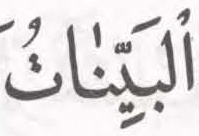 ٱلْبَيِّنَٰاتُ